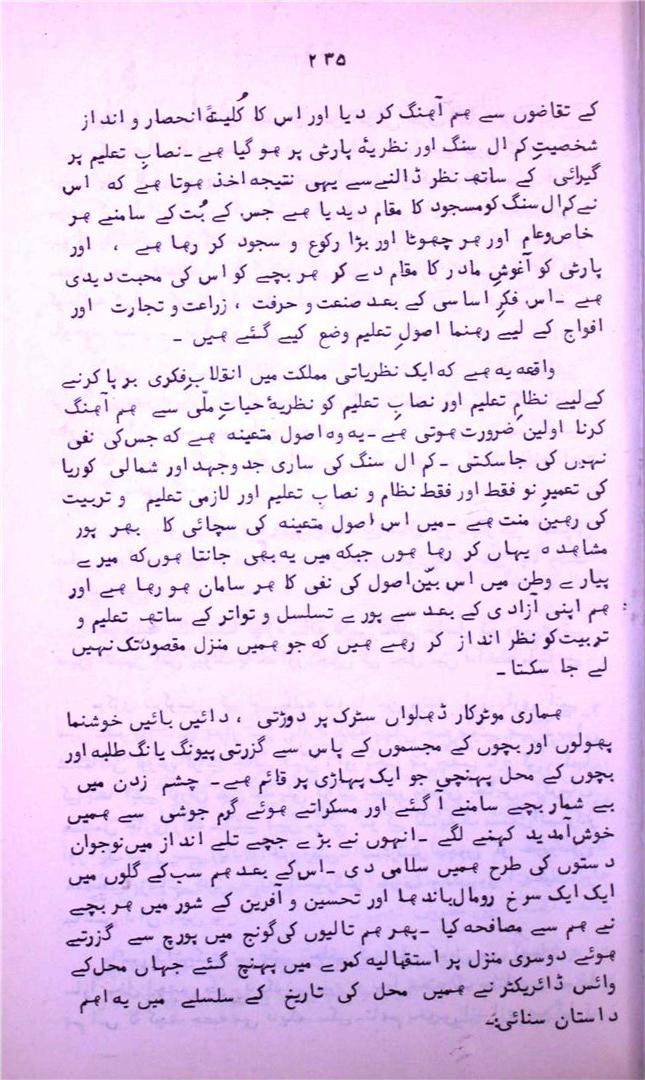 ۲۳۵
کے تقاضوں سے ھم آھنگ کر دیا اور اس کا کُلیۃً انحصار و انداز
شخصیتِ کم ال سنگ اور نظریۂ پارٹی پر ھو گیا ھے۔ نصابِ تعلیم پر
گیرائی کے ساتھ نظر ڈالنے سے یہی نتیجہ اخذ ھوتا ھے کہ اس
نے کم ال سنگ کو مسجود کا مقام دیدیا ھے جس کے بُت کے سامنے ھر
خاص وعام اور ھر چھوٹا اور بڑا رکوع و سجود کر رھا ھے ، اور
پارٹی کو آغوشِ مادر کا مقام دے کر ھر بچے کو اس کی محبت دیدی
ھے ۔ اس فکرِ اساسی کے بعد صنعت و حرفت ، زراعت و تجارت اور
افواج کے لیے رھنما اصولِ تعلیم وضع کیے گئے ھیں ۔
واقعہ یہ ھے کہ ایک نظریاتی مملکت میں انقلابِ فکری برپا کرنے
کے لیے نظامِ تعلیم اور نصابِ تعلیم کو نظریۂ حیاتِ ملّی سے ھم آھنگ
کرنا اولین ضرورت ھوتی ھے ۔ یہ وہ اصول متعینہ ھے کہ جس کی نفی
نہیں کی جا سکتی ۔ کم ال سنگ کی ساری جدوجہد اور شمالی کوریا
کی تعمیرِ نو فقط اور فقط نظام و نصابِ تعلیم اور لازمی تعلیم و تربیت
کی رھین منت ھے ۔ میں اس اصول متعینہ کی سچائی کا بھر پور
مشاھدہ یہاں کر رھا ھوں جبکہ میں یہ بھی جانتا ھوں کہ میرے
پیارے وطن میں اس بیّن اصول کی نفی کا ھر سامان ھو رھا ھے اور
ھم اپنی آزادی کے بعد سے پورے تسلسل و تواتر کے ساتھ تعلیم و
تربیت کو نظر انداز کر رھے ھیں کہ جو ھمیں منزل مقصود تک نہیں
لے جا سکتا ۔
ھماری موٹر کار ڈھلواں سڑک پر دوڑتی ، دائیں بائیں خوشنما
پھولوں اور بچوں کے مجسموں کے پاس سے گزرتی پیونگ یانگ طلبہ اور
بچوں کے محل پہنچی جو ایک پہاڑی پر قائم ھے ۔ چشم زدن میں
بے شمار بچے سامنے آ گئے اور مسکراتے ھوئے گرم جوشی سے ھمیں
خوش آمدید کہنے لگے ۔ انہوں نے بڑے جچے تلے انداز میں نوجوان
دستوں کی طرح ھمیں سلامی دی ۔ اس کے بعد ھم سب کے گلوں میں
ایک ایک سرخ رومال باندھا اور تحسین و آفرین کے شور میں ھر بچے
نے ھم سے مصافحہ کیا ۔ پھر ھم تالیوں کی گونج میں پورچ سے گزرتے
ھوئے دوسری منزل پر استقبالیہ کمرے میں پہنچ گئے جہاں محل کے
وائس ڈائریکٹر نے ھمیں محل کی تاریخ کے سلسلے میں یہ اھم
داستان سنائی:۔